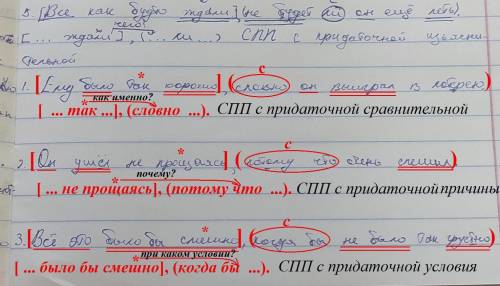 5. [Все как будто ждали], (не будет ли он ещё петь).
чего?
[... ждали], (... ли ...) СПП с придаточной изъясни-
тельной
* с
1. [Ему было так хорошо], (словно он выиграл в лотерею)
как именно?
[ ... так ...], (словно ...). СПП с придаточной сравнительной
* с
2. [Он ушёл не прощаясь], (потому что очень спешил)
почему?
[ ... не прощаясь], (потому что ...). СПП с придаточной причины
* с
3. [Всё это было бы смешно, (когда бы не было так грустно)
при каком условии?
[ ... было бы смешно], (когда бы ...). СПП с придаточной условия